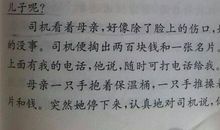 儿子呢?
司机看着母亲,好像除了脸上的伤口,
的没事。司机便掏出两百块钱和一张名片。
上面有我的电话,他说,随时可打电话给我。
母亲一只手抱着保温桶,一只手推搡
片和钱。突然她停下来,认真地对司机说,